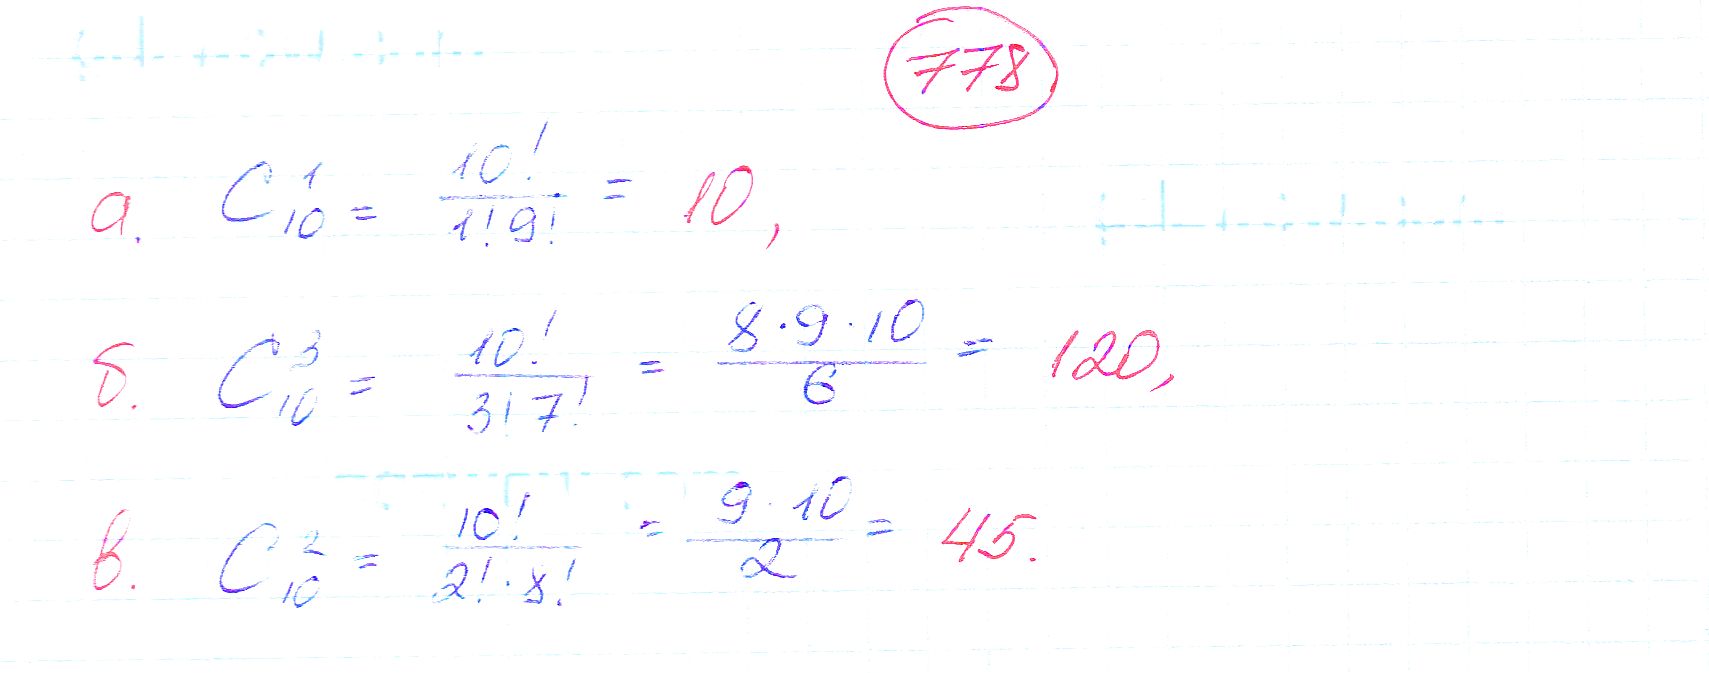 778
а. C₁₀¹ = 10!/(1!9!) = 10,
б. C₁₀³ = 10!/(3!7!) = (8·9·10)/6 = 120,
в. C₁₀² = 10!/(2!·8!) = (9·10)/2 = 45.